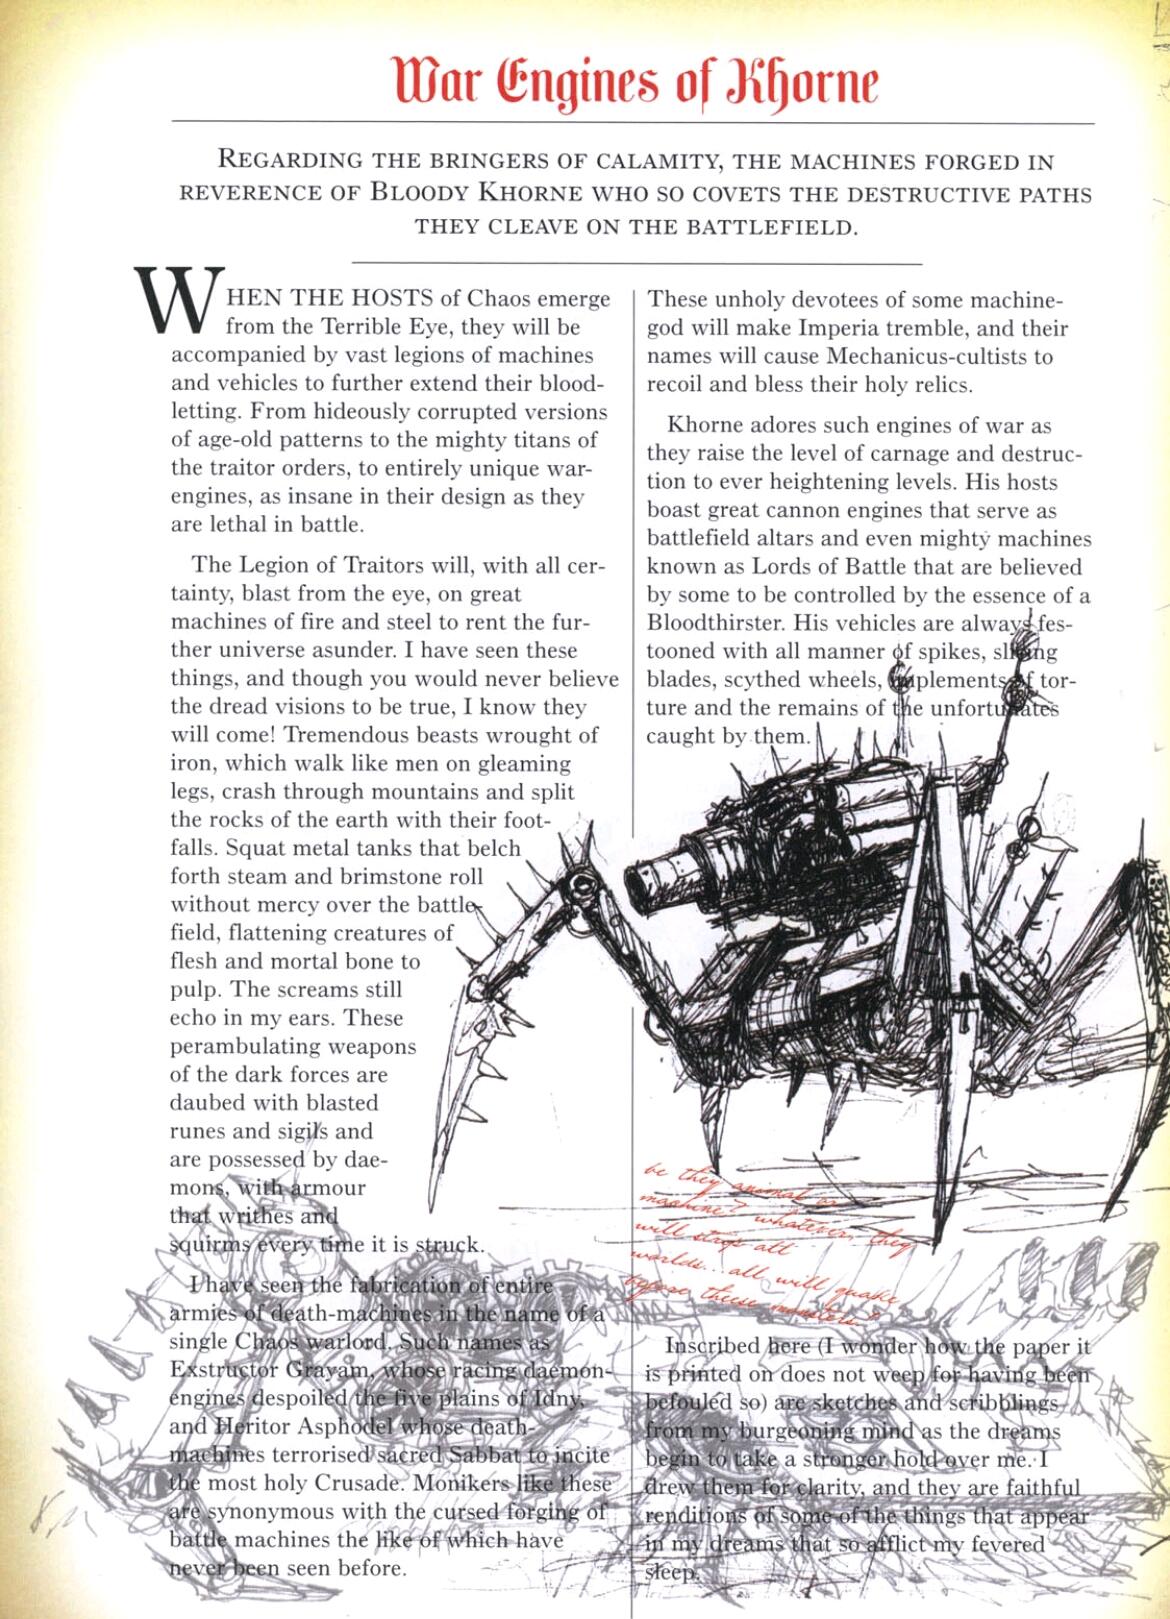 War Engines of Khorne
REGARDING THE BRINGERS OF CALAMITY, THE MACHINES FORGED IN
REVERENCE OF BLOODY KHORNE WHO SO COVETS THE DESTRUCTIVE PATHS
THEY CLEAVE ON THE BATTLEFIELD.
WHEN THE HOSTS of Chaos emerge
from the Terrible Eye, they will be
accompanied by vast legions of machines
and vehicles to further extend their blood-
letting. From hideously corrupted versions
of age-old patterns to the mighty titans of
the traitor orders, to entirely unique war-
engines, as insane in their design as they
are lethal in battle.
The Legion of Traitors will, with all cer-
tainty, blast from the eye, on great
machines of fire and steel to rent the fur-
ther universe asunder. I have seen these
things, and though you would never believe
the dread visions to be true, I know they
will come! Tremendous beasts wrought of
iron, which walk like men on gleaming
legs, crash through mountains and split
the rocks of the earth with their foot-
falls. Squat metal tanks that belch
forth steam and brimstone roll
without mercy over the battle-
field, flattening creatures of
flesh and mortal bone to
pulp. The screams still
echo in my ears. These
perambulating weapons
of the dark forces are
daubed with blasted
runes and sigils and
are possessed by dae-
mons, with armour
that writhes and
squirms every time it is struck.
I have seen the fabrication of entire
armies of death-machines in the name of a
single Chaos warlord. Such names as
Exstructor Grayam, whose racing daemon-
engines despoiled the five plains of Idny,
and Heritor Asphodel whose death-
machines terrorised sacred Sabbat to incite
the most holy Crusade. Monikers like these
are synonymous with the cursed forging of
battle machines the like of which have
never been seen before.
These unholy devotees of some machine-
god will make Imperia tremble, and their
names will cause Mechanicus-cultists to
recoil and bless their holy relics.
Khorne adores such engines of war as
they raise the level of carnage and destruc-
tion to ever heightening levels. His hosts
boast great cannon engines that serve as
battlefield altars and even mighty machines
known as Lords of Battle that are believed
by some to be controlled by the essence of a
Bloodthirster. His vehicles are always fes-
tooned with all manner of spikes, slicing
blades, scythed wheels, implements of tor-
ture and the remains of the unfortunates
caught by them.
be they animal or
machine? whatever, they
will strip all
worlds...all will quake
before these monsters."
Inscribed here (I wonder how the paper it
is printed on does not weep for having been
befouled so) are sketches and scribblings
from my burgeoning mind as the dreams
begin to take a stronger hold over me. I
drew them for clarity, and they are faithful
renditions of some of the things that appear
in my dreams that so afflict my fevered
sleep.